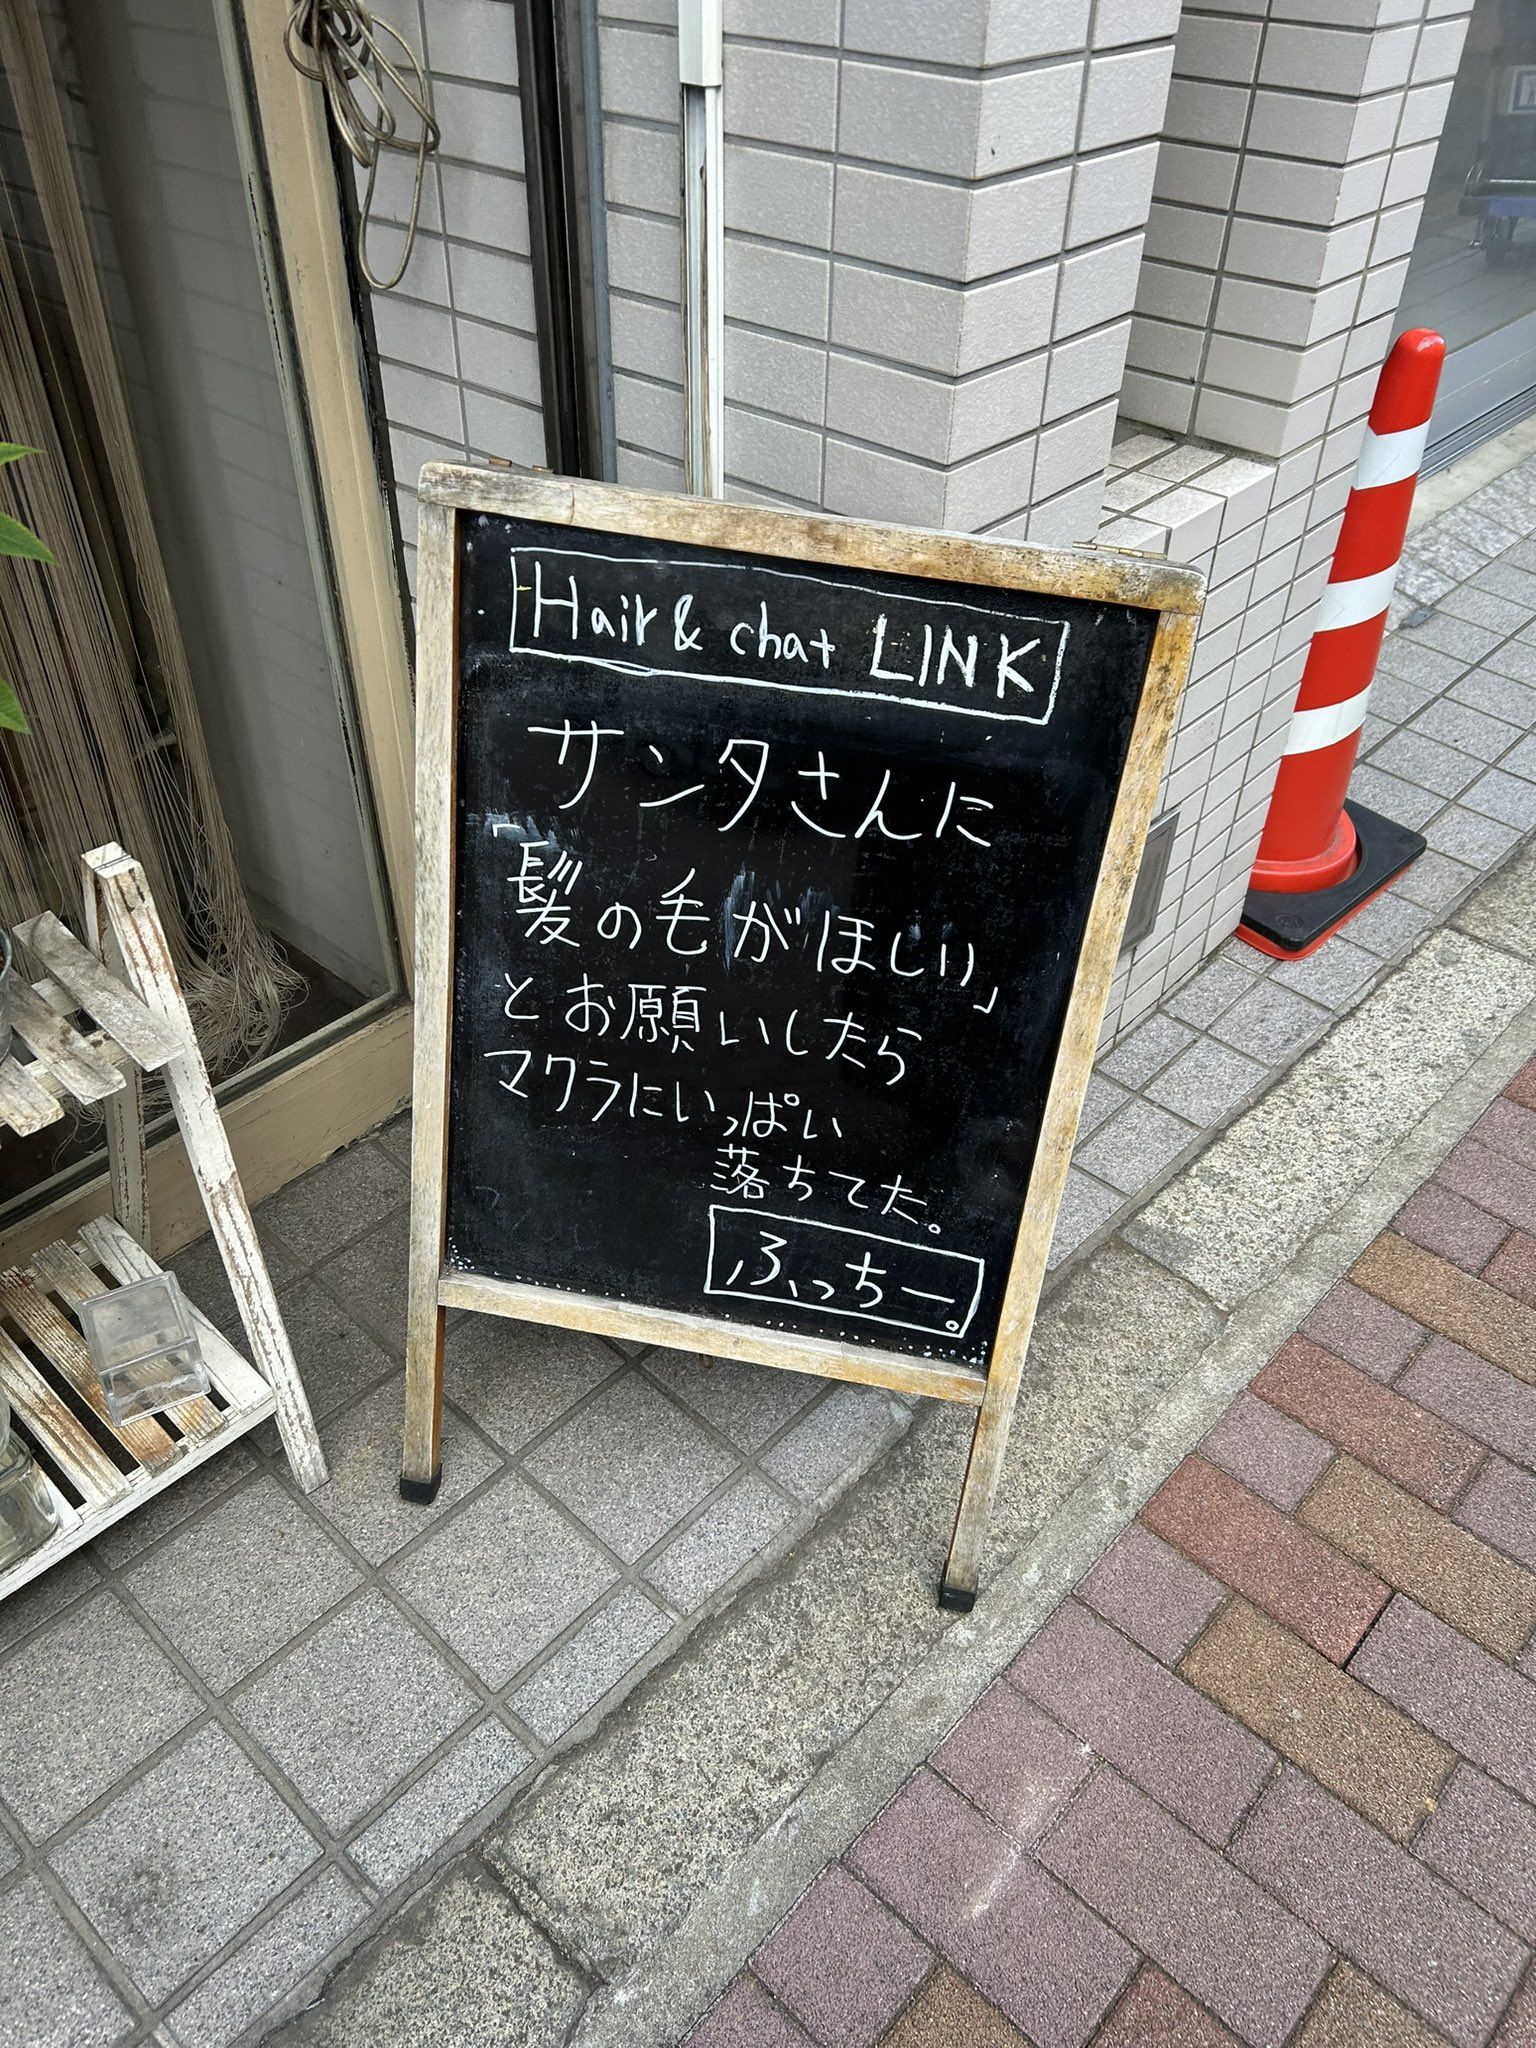 Hair & chat LINK
サンタさんに
「髪の毛がほしい」
とお願いしたら
マクラにいっぱい
落ちてた。
ふっちー。